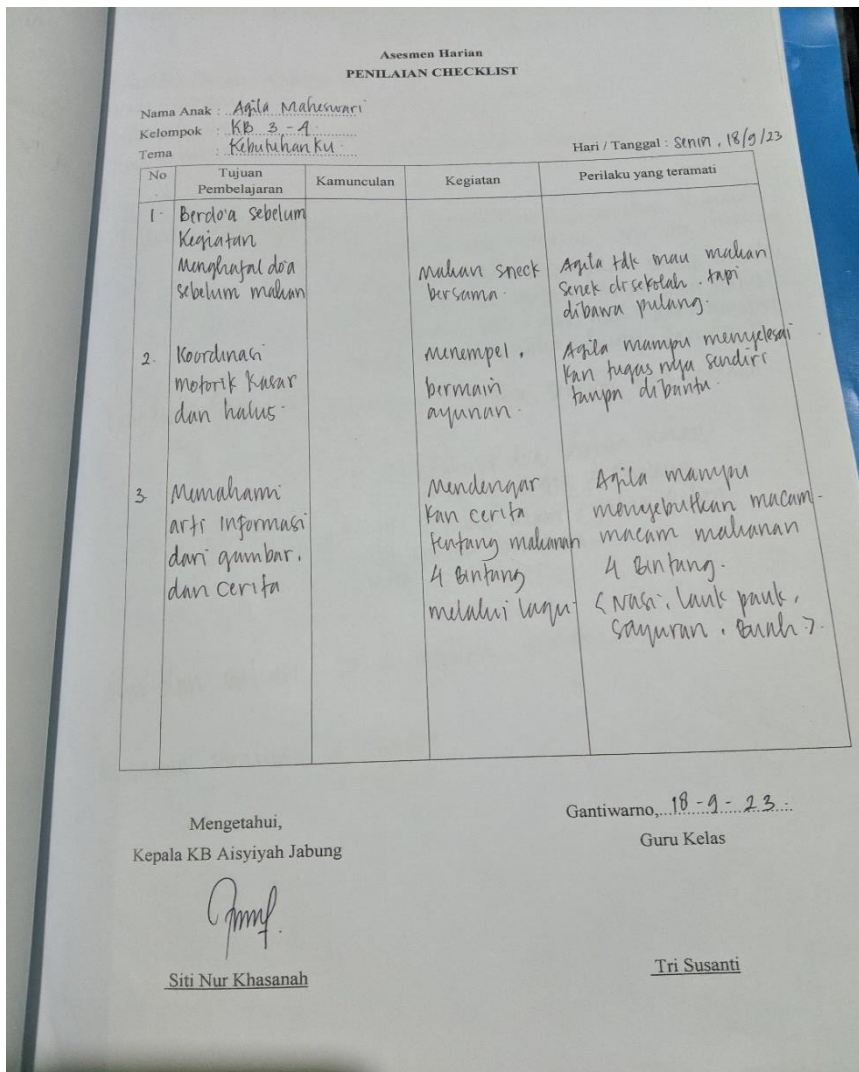 Asesmen Harian
PENILAIAN CHECKLIST
Nama Anak : Aqila Maheswari
Kelompok : KB 3-4
Tema : Kebutuhanku
Hari / Tanggal : Senin, 18/9/23
No.
Tujuan Pembelajaran
Kamunculan
Kegiatan
Perilaku yang teramati
1.
Berdo'a sebelum
Kegiatan
Menghafal do'a
sebelum makan
Makan sneck
bersama.
Aqila tdk mau makan
senek disekolah. tapi
dibawa pulang.
2.
Koordinasi
motorik kasar
dan halus.
Menempel.
bermain
ayunan.
Aqila mampu menyelesai
kan tugas nya sendiri
tanpa dibantu.
3.
Memahami
arti informasi
dari gambar.
dan cerita
Mendengar
kan cerita
tentang makanan
4 Bintang
melalui lagu.
Aqila mampu
menyebutkan macam-
macam makanan
4 Bintang.
< Nasi, lauk pauk,
sayuran, Buah >.
Mengetahui,
Kepala KB Aisyiyah Jabung
Siti Nur Khasanah
Gantiwarno, 18 - 9 - 23
Guru Kelas
Tri Susanti